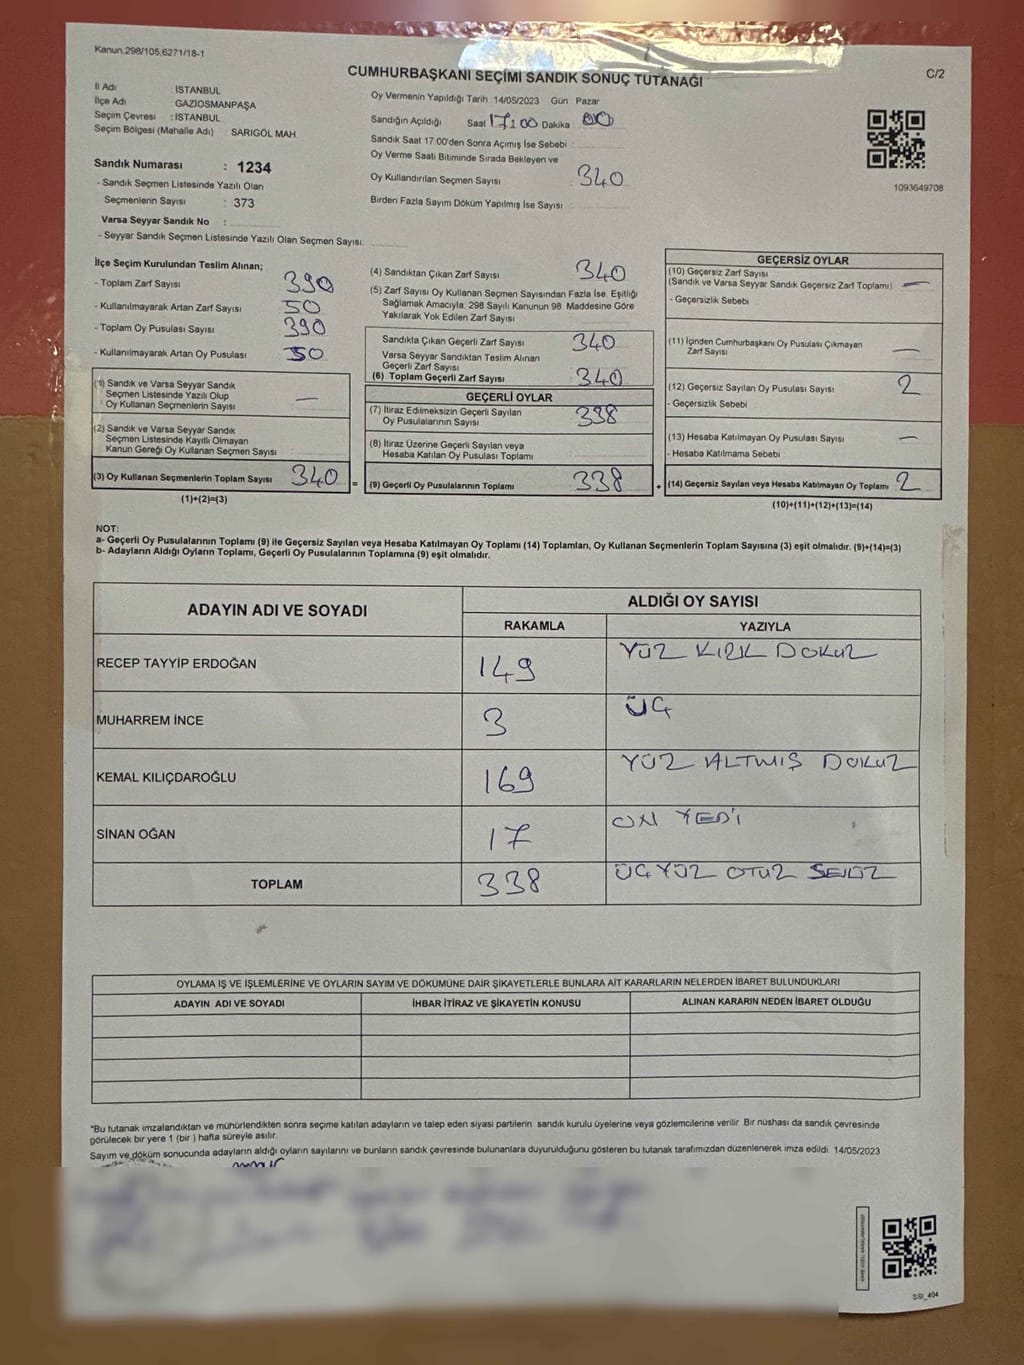 Kanun.298/105,6271/18-1
C/2
CUMHURBAŞKANI SEÇİMİ SANDIK SONUÇ TUTANAĞI
İl Adı İSTANBUL
İlçe Adı GAZİOSMANPAŞA
Seçim Çevresi : İSTANBUL
Seçim Bölgesi (Mahalle Adı) : SARIGÖL MAH
Sandık Numarası : 1234
- Sandık Seçmen Listesinde Yazılı Olan
Seçmenlerin Sayısı : 373
Varsa Seyyar Sandık No :
- Seyyar Sandık Seçmen Listesinde Yazılı Olan Seçmen Sayısı:
Oy Vermenin Yapıldığı Tarih 14/05/2023 Gün Pazar
Sandığın Açıldığı Saat 17:00 Dakika 00
Sandık Saat 17:00'den Sonra Açılmış İse Sebebi :
Oy Verme Saati Bitiminde Sırada Bekleyen ve
Oy Kullandırılan Seçmen Sayısı : 340
Birden Fazla Sayım Döküm Yapılmış İse Sayısı :
1093649708
İlçe Seçim Kurulundan Teslim Alınan;
- Toplam Zarf Sayısı : 390
- Kullanılmayarak Artan Zarf Sayısı : 50
- Toplam Oy Pusulası Sayısı : 390
- Kullanılmayarak Artan Oy Pusulası : 50
(1) Sandık ve Varsa Seyyar Sandık
Seçmen Listesinde Yazılı Olup
Oy Kullanan Seçmenlerin Sayısı —
(2) Sandık ve Varsa Seyyar Sandık
Seçmen Listesinde Kayıtlı Olmayan
Kanun Gereği Oy Kullanan Seçmen Sayısı
(3) Oy Kullanan Seçmenlerin Toplam Sayısı 340 =
(1)+(2)=(3)
(4) Sandıktan Çıkan Zarf Sayısı 340
(5) Zarf Sayısı Oy Kullanan Seçmen Sayısından Fazla İse, Eşitliği
Sağlamak Amacıyla, 298 Sayılı Kanunun 98. Maddesine Göre
Yakılarak Yok Edilen Zarf Sayısı
Sandıkta Çıkan Geçerli Zarf Sayısı 340
Varsa Seyyar Sandıktan Teslim Alınan
Geçerli Zarf Sayısı
(6) Toplam Geçerli Zarf Sayısı 340
GEÇERLİ OYLAR
(7) İtiraz Edilmeksizin Geçerli Sayılan
Oy Pusulalarının Sayısı 338
(8) İtiraz Üzerine Geçerli Sayılan veya
Hesaba Katılan Oy Pusulası Toplamı
(9) Geçerli Oy Pusulalarının Toplamı 338 +
GEÇERSİZ OYLAR
(10) Geçersiz Zarf Sayısı
(Sandık ve Varsa Seyyar Sandık Geçersiz Zarf Toplamı) —
- Geçersizlik Sebebi
(11) İçinden Cumhurbaşkanı Oy Pusulası Çıkmayan
Zarf Sayısı —
(12) Geçersiz Sayılan Oy Pusulası Sayısı 2
- Geçersizlik Sebebi
(13) Hesaba Katılmayan Oy Pusulası Sayısı —
- Hesaba Katılmama Sebebi
(14) Geçersiz Sayılan veya Hesaba Katılmayan Oy Toplamı 2
(10)+(11)+(12)+(13)=(14)
NOT:
a- Geçerli Oy Pusulalarının Toplamı (9) ile Geçersiz Sayılan veya Hesaba Katılmayan Oy Toplamı (14) Toplamları, Oy Kullanan Seçmenlerin Toplam Sayısına (3) eşit olmalıdır. (9)+(14)=(3)
b- Adayların Aldığı Oyların Toplamı, Geçerli Oy Pusulalarının Toplamına (9) eşit olmalıdır.
ADAYIN ADI VE SOYADI
ALDIĞI OY SAYISI
RAKAMLA YAZIYLA
RECEP TAYYİP ERDOĞAN 149 YÜZ KIRK DOKUZ
MUHARREM İNCE 3 ÜÇ
KEMAL KILIÇDAROĞLU 169 YÜZ ALTMIŞ DOKUZ
SİNAN OĞAN 17 ON YEDİ
TOPLAM 338 ÜÇYÜZ OTUZ SEKİZ
OYLAMA İŞ VE İŞLEMLERİNE VE OYLARIN SAYIM VE DÖKÜMÜNE DAİR ŞİKAYETLERLE BUNLARA AİT KARARLARIN NELERDEN İBARET BULUNDUKLARI
ADAYIN ADI VE SOYADI İHBAR İTİRAZ VE ŞİKAYETİN KONUSU ALINAN KARARIN NEDEN İBARET OLDUĞU
*Bu tutanak imzalandıktan ve mühürlendikten sonra seçime katılan adayların ve talep eden siyasi partilerin sandık kurulu üyelerine veya gözlemcilerine verilir. Bir nüshası da sandık çevresinde
görülecek bir yere 1 (bir ) hafta süreyle asılır.
Sayım ve döküm sonucunda adayların aldığı oyların sayılarını ve bunların sandık çevresinde bulunanlara duyurulduğunu gösteren bu tutanak tarafımızdan düzenlenerek imza edildi. 14/05/2023
SSI_404